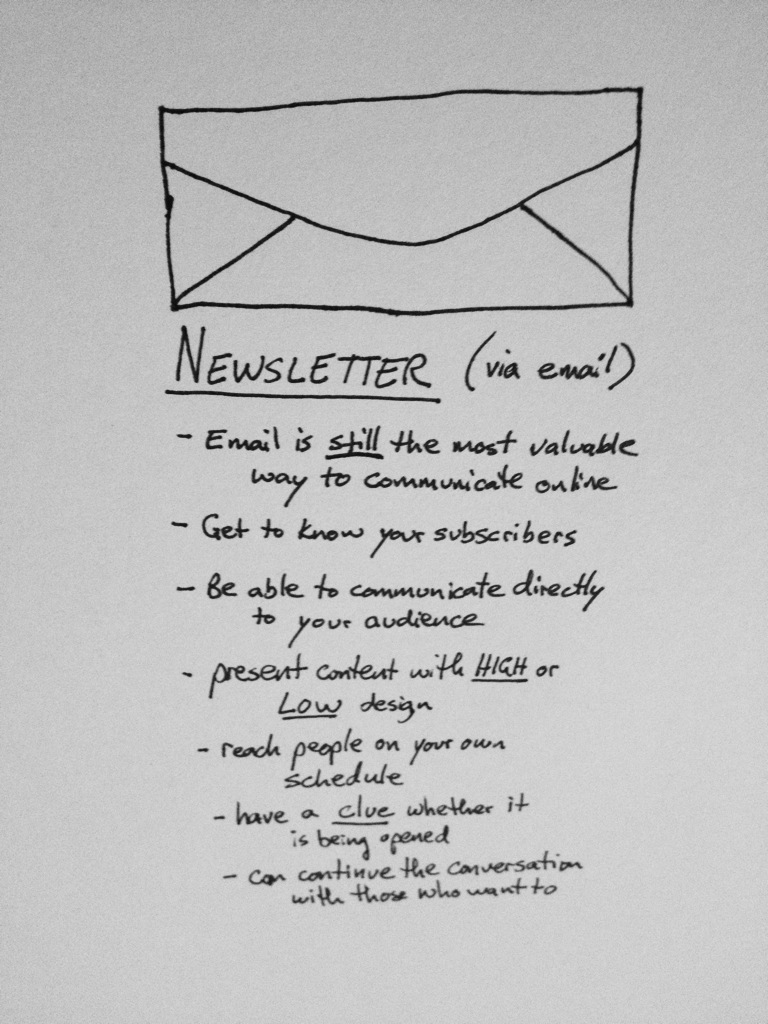 NEWSLETTER (via email)
- Email is still the most valuable
way to communicate online
- Get to know your subscribers
- Be able to communicate directly
to your audience
- present content with HIGH or
LOW design
- reach people on your own
schedule
- have a clue whether it
is being opened
- can continue the conversation
with those who want to